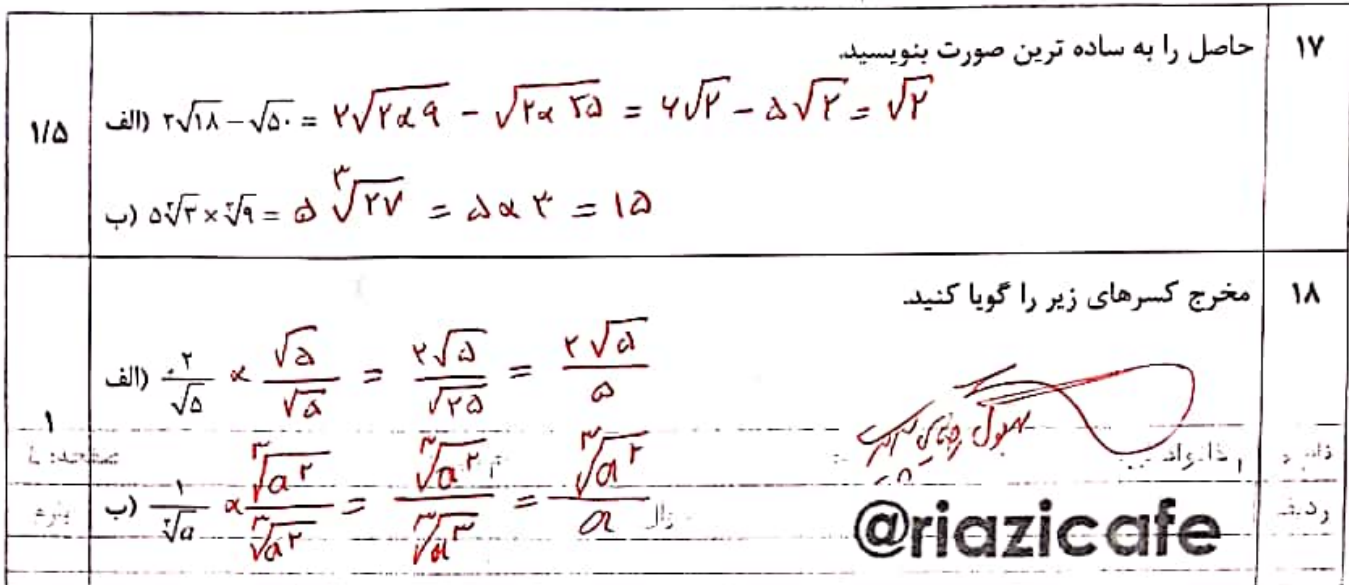 ۱۷ حاصل را به ساده ترین صورت بنویسید.
۱/۵
الف) ۲√۱۸ − √۵۰ = ۲√(۲×۹) − √(۲×۲۵) = ۶√۲ − ۵√۲ = √۲
ب) ۵∛۳ × ∛۹ = ۵ ∛۲۷ = ۵×۳ = ۱۵
۱۸ مخرج کسرهای زیر را گویا کنید.
۱
الف) ۲/√۵ × √۵/√۵ = ۲√۵/√۲۵ = ۲√۵/۵
ب) ۱/∛a × ∛a۲/∛a۲ = ∛a۲/∛a۳ = ∛a۲/a
@riazicafe